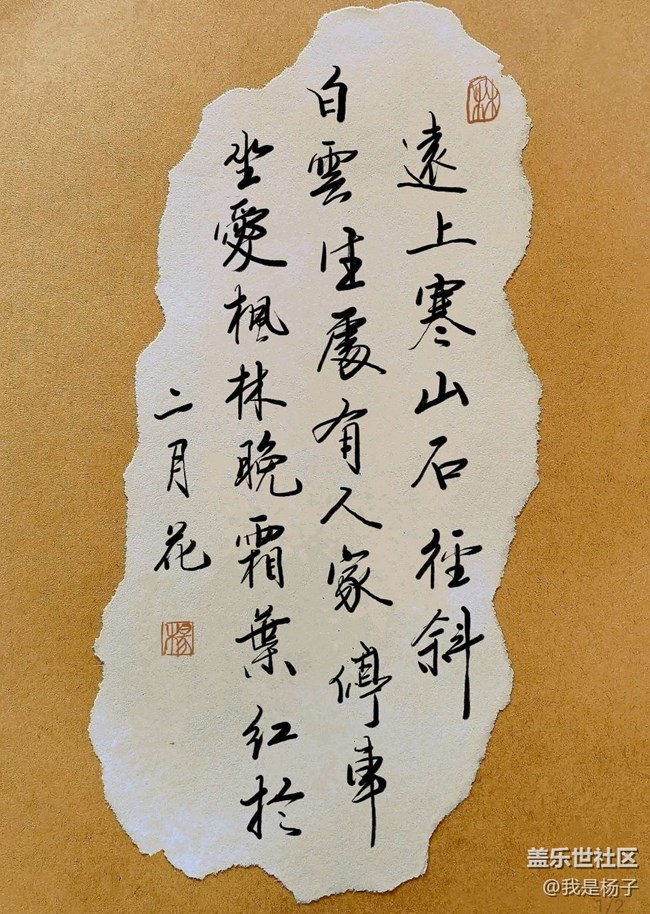 遠上寒山石徑斜
白雲生處有人家停車
坐愛楓林晚霜葉红於
二月花
林
楊
盖乐世社区
@我是杨子